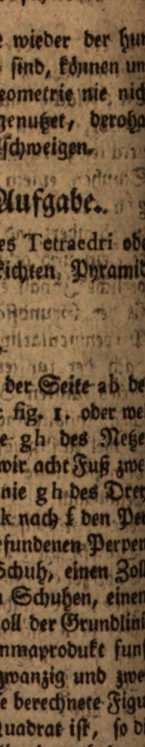 wieder der hun
sind, können un
eometrie nie nich
genutzet, deroha
schweigen.
Aufgabe.
es Tetraedri ode
eichten, Pyramid
der Seite ab de
fig. 1. oder we
e gh des Netze
wir acht Fuß zwe
nie gh des Drey
k nach f den Pe
efundenen Perpen
Schuh, einen Zol
n Schuhen, einen
oll der Grundlini
nmaprodukt funf
zwanzig und zwe
e berechnete Figu
uadrat ist, so di